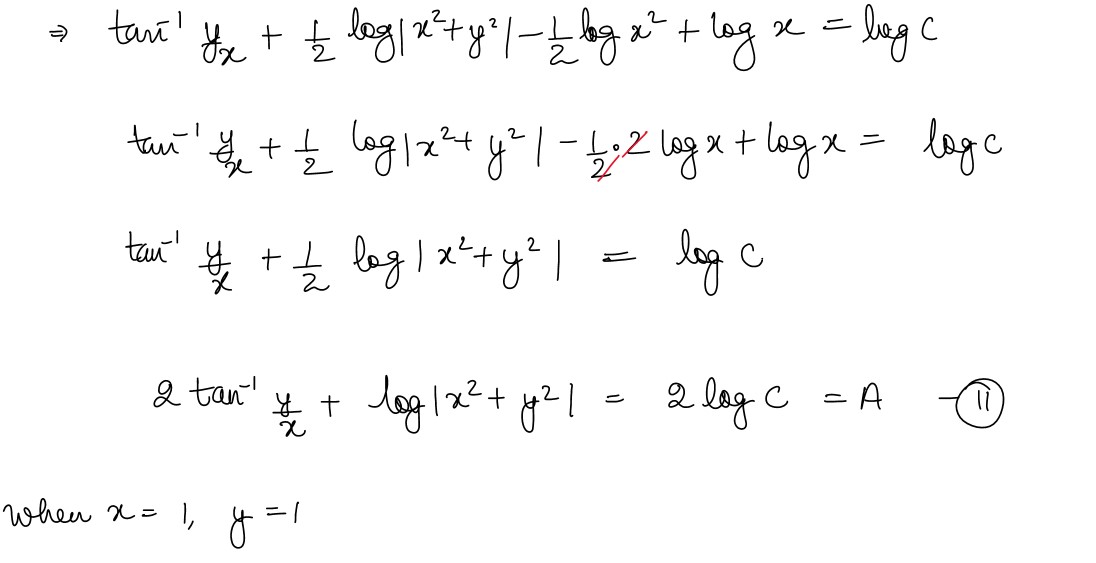 ⇒ tan⁻¹ y/x + 1/2 log|x²+y²| - 1/2 log x² + log x = log C
tan⁻¹ y/x + 1/2 log|x²+y²| - 1/2·2 log x + log x = log C
tan⁻¹ y/x + 1/2 log|x²+y²| = log C
2 tan⁻¹ y/x + log|x²+y²| = 2 log C = A - II
When x = 1, y = 1